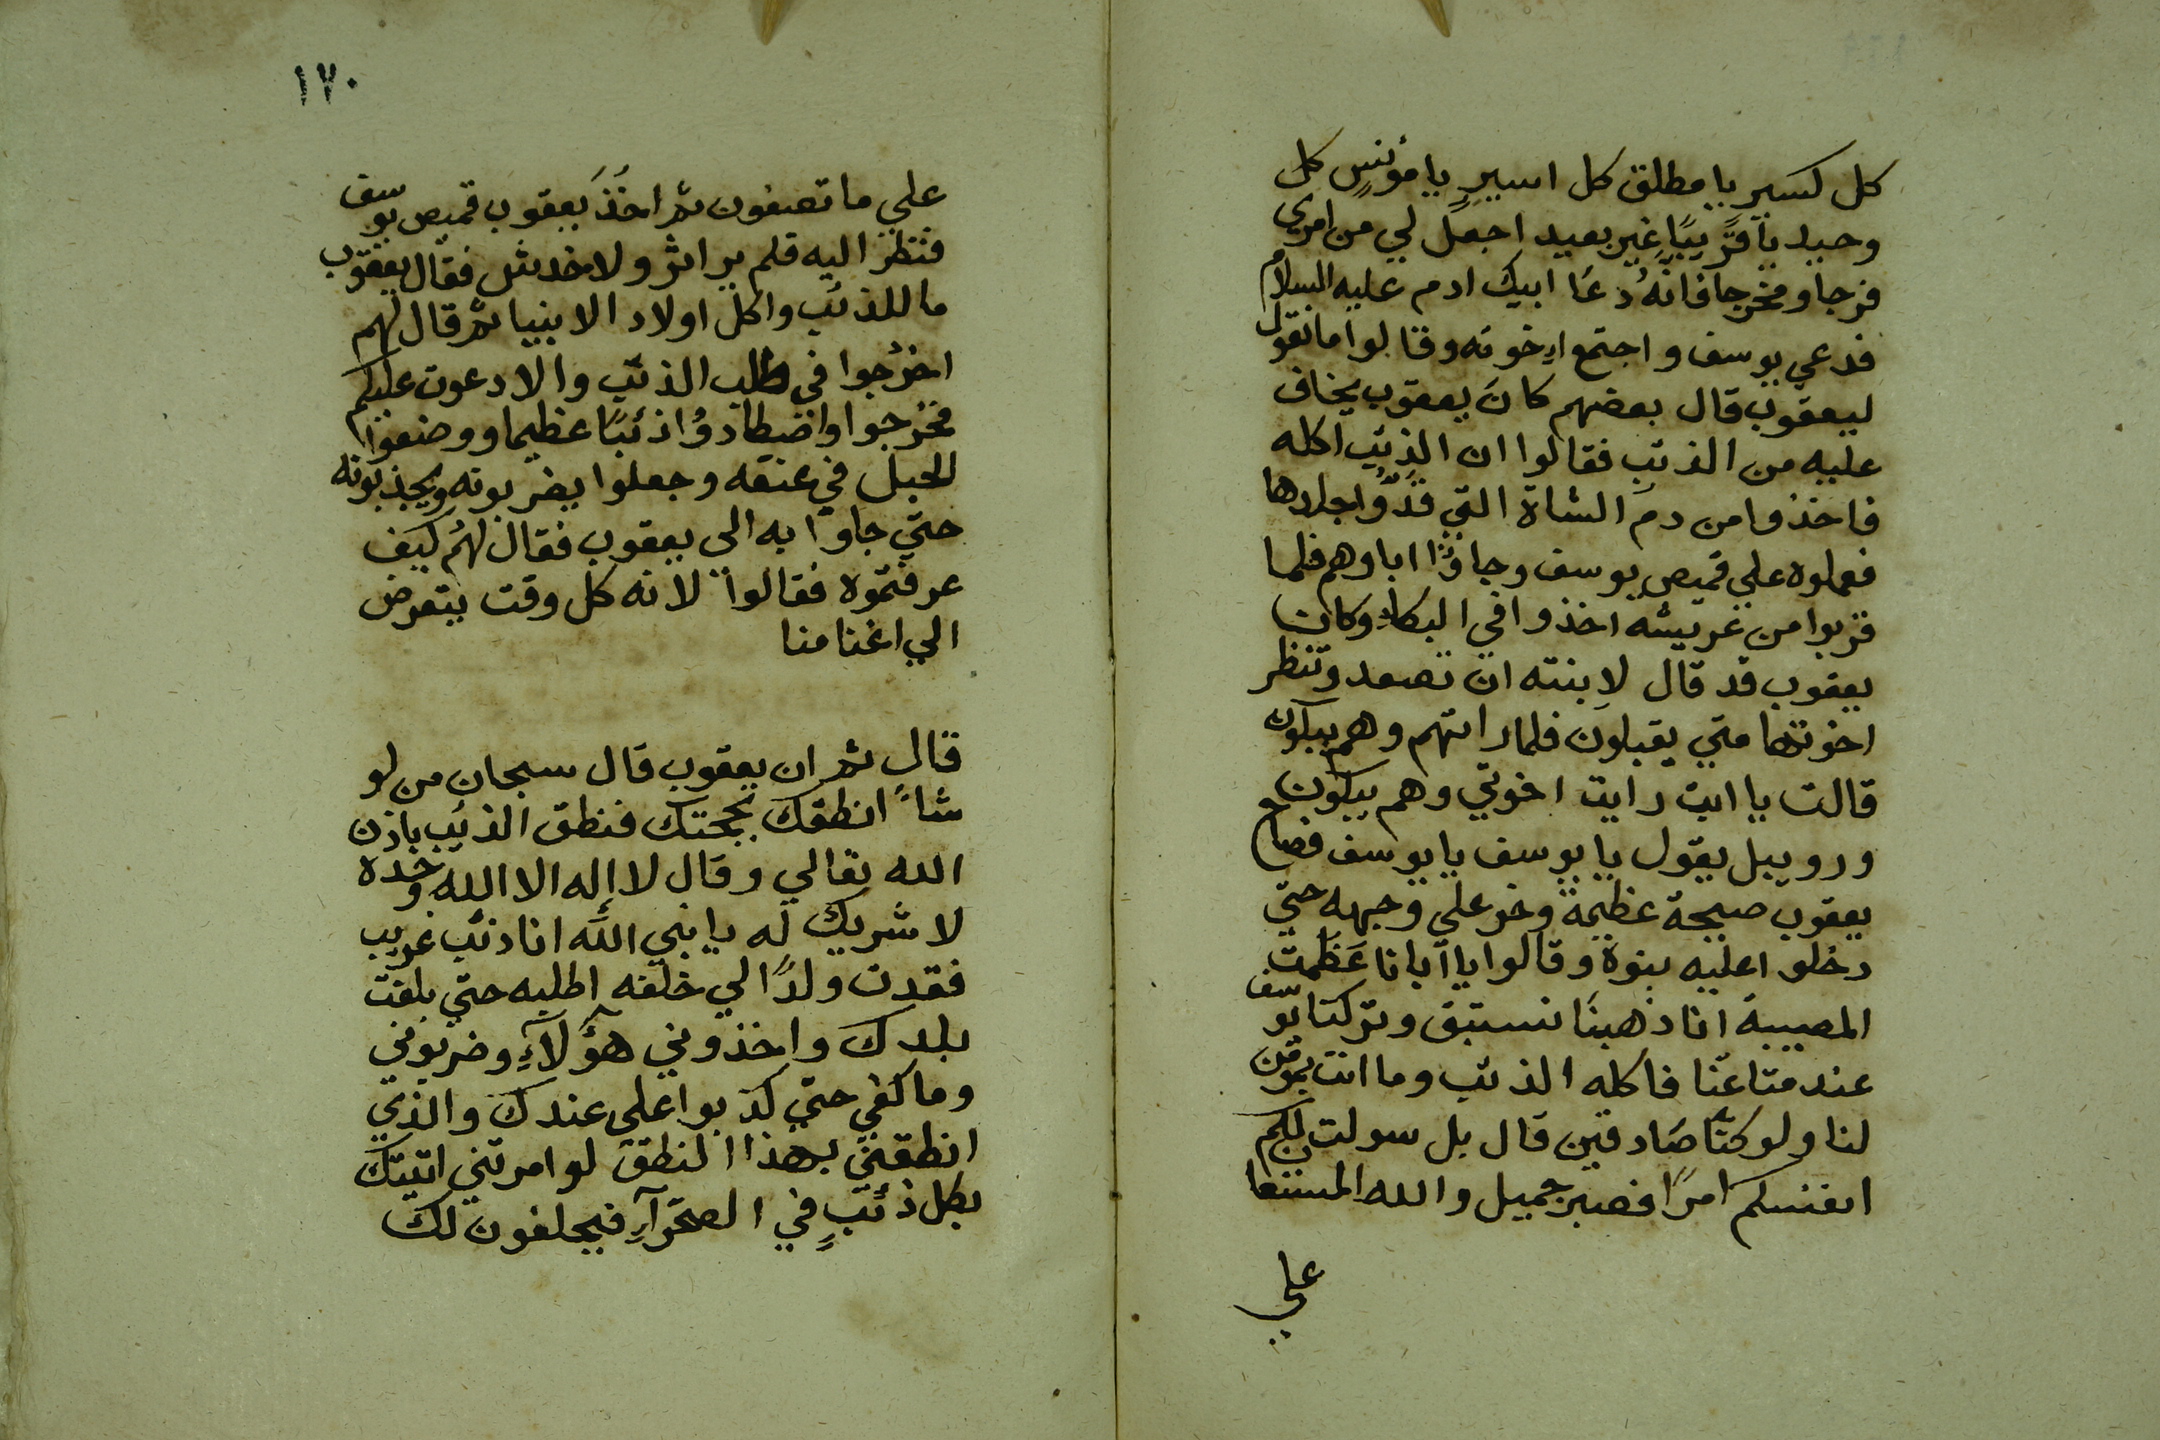 كل كسير يا مطلق كل اسيرٍ يا مؤنسٍ كل
وحيد يا قريبًا غير بعيد اجعل لي من امري
فرجا ومخرجا فانهُ دعَا ابيك ادم عليه السلام
فدعي يوسف واجتمع اِخوته وقالوا ما نقول
ليعقوب قال بعضهم كانَ يعقوب يخاف
عليه من الذئب فقالوا ان الذئِب اكله
فاخذوا من دم الشاة التي قدُّوا جلدها
فعملوه علي قميص يوسف وجاؤا اباوهم فلما
قربوا من عريشه اخذوا في البكاء وكان
يعقوب قد قال لابنته ان تصعد وتنظر
اخوتها متي يقبلون فلما راتهم وهم يبكون
قالت يا ابت رايت اخوتي وهم يبكون
وروبيل يقول يا يوسف يا يوسف فصاح
يعقوب صيحة عظيمة وخر علي وجهه حتي
دخلوا عليه بنوة وقالوا يا آبانا عَظمت
المصيبة انا ذهبنَا نستبق وتركنا يوسف
عند متاعنَا فاكله الذئب وما انت بموقن
لنا ولو كنّا صَادقين قال بل سولت لكم
انفسكم امرًا فصبر جميل والله المستعا
علي
١٧٠
علي ما تصفون ثم اخَذَ يَعقوب قميص يوسف
فنظر اليه فلم ير اثر ولا خدش فقال يعقوب
ما للذئب واكل اولاد الانبيا ثم قال لهم
اخرُجوا في طلب الذئب والا دعوت عليكم
فخرجوا واصطادوُا ذئبًا عظيما ووضعوا
الحبل في عنقه وجعلوا يضربونه ويجذبونه
حتي جاوا به الي يعقوب فقال لهُم كيف
عرفتموه فقالوا لانه كل وقت يتعرض
الي اغنامنا
قال ثم ان يعقوب قال سبحان من لو
شاءً انطقك بحجتك فنطق الذئِب باذن
الله تعالي وقال لا إله الا الله وحده
لا شريك له يا نبي الله انا ذئب غريب
فقدت ولدًا لي خلفه اطلبه حتي بلغت
بلدك واخذوني هؤُلآءِ وضربوني
وما كفي حتي كذبوا علي عندك والذي
انطقني بهذا النطق لو امرتني اتيتك
بكل ذئبٍ في الصحرآءِ فيحلفون لك